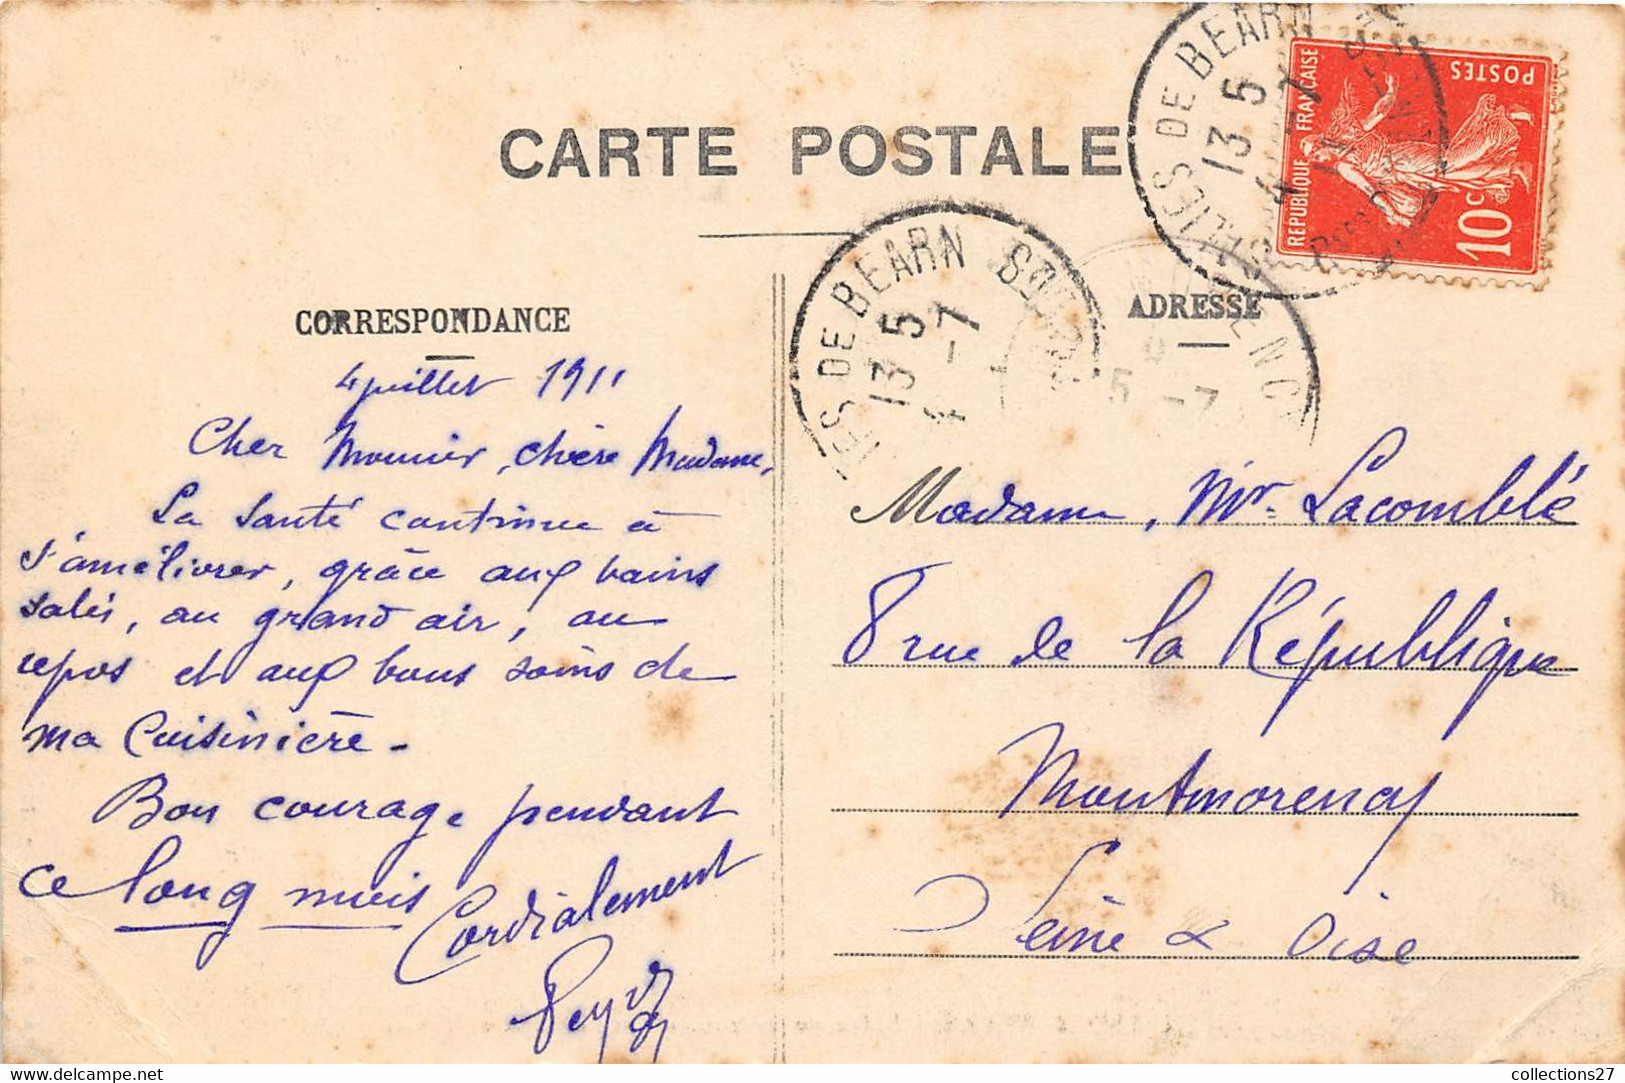 CARTE POSTALE
CORRESPONDANCE
4 juillet 1911
Cher Monsieur, chère Madame,
La santé continue à
s'améliorer, grâce aux bains
salés, au grand air, au
repos et aux bons soins de
ma Cuisinière -
Bon courage pendant
ce long mois
Cordialement
ADRESSE
Madame, Mr. Lacomblé
8 rue de la République
Montmorency
Seine & Oise
SALIES DE BEARN
13 5
4 -7
11
REPUBLIQUE FRANÇAISE
POSTES
10c
IES DE BEARN
13 5
4 -7
5 -7
collections27